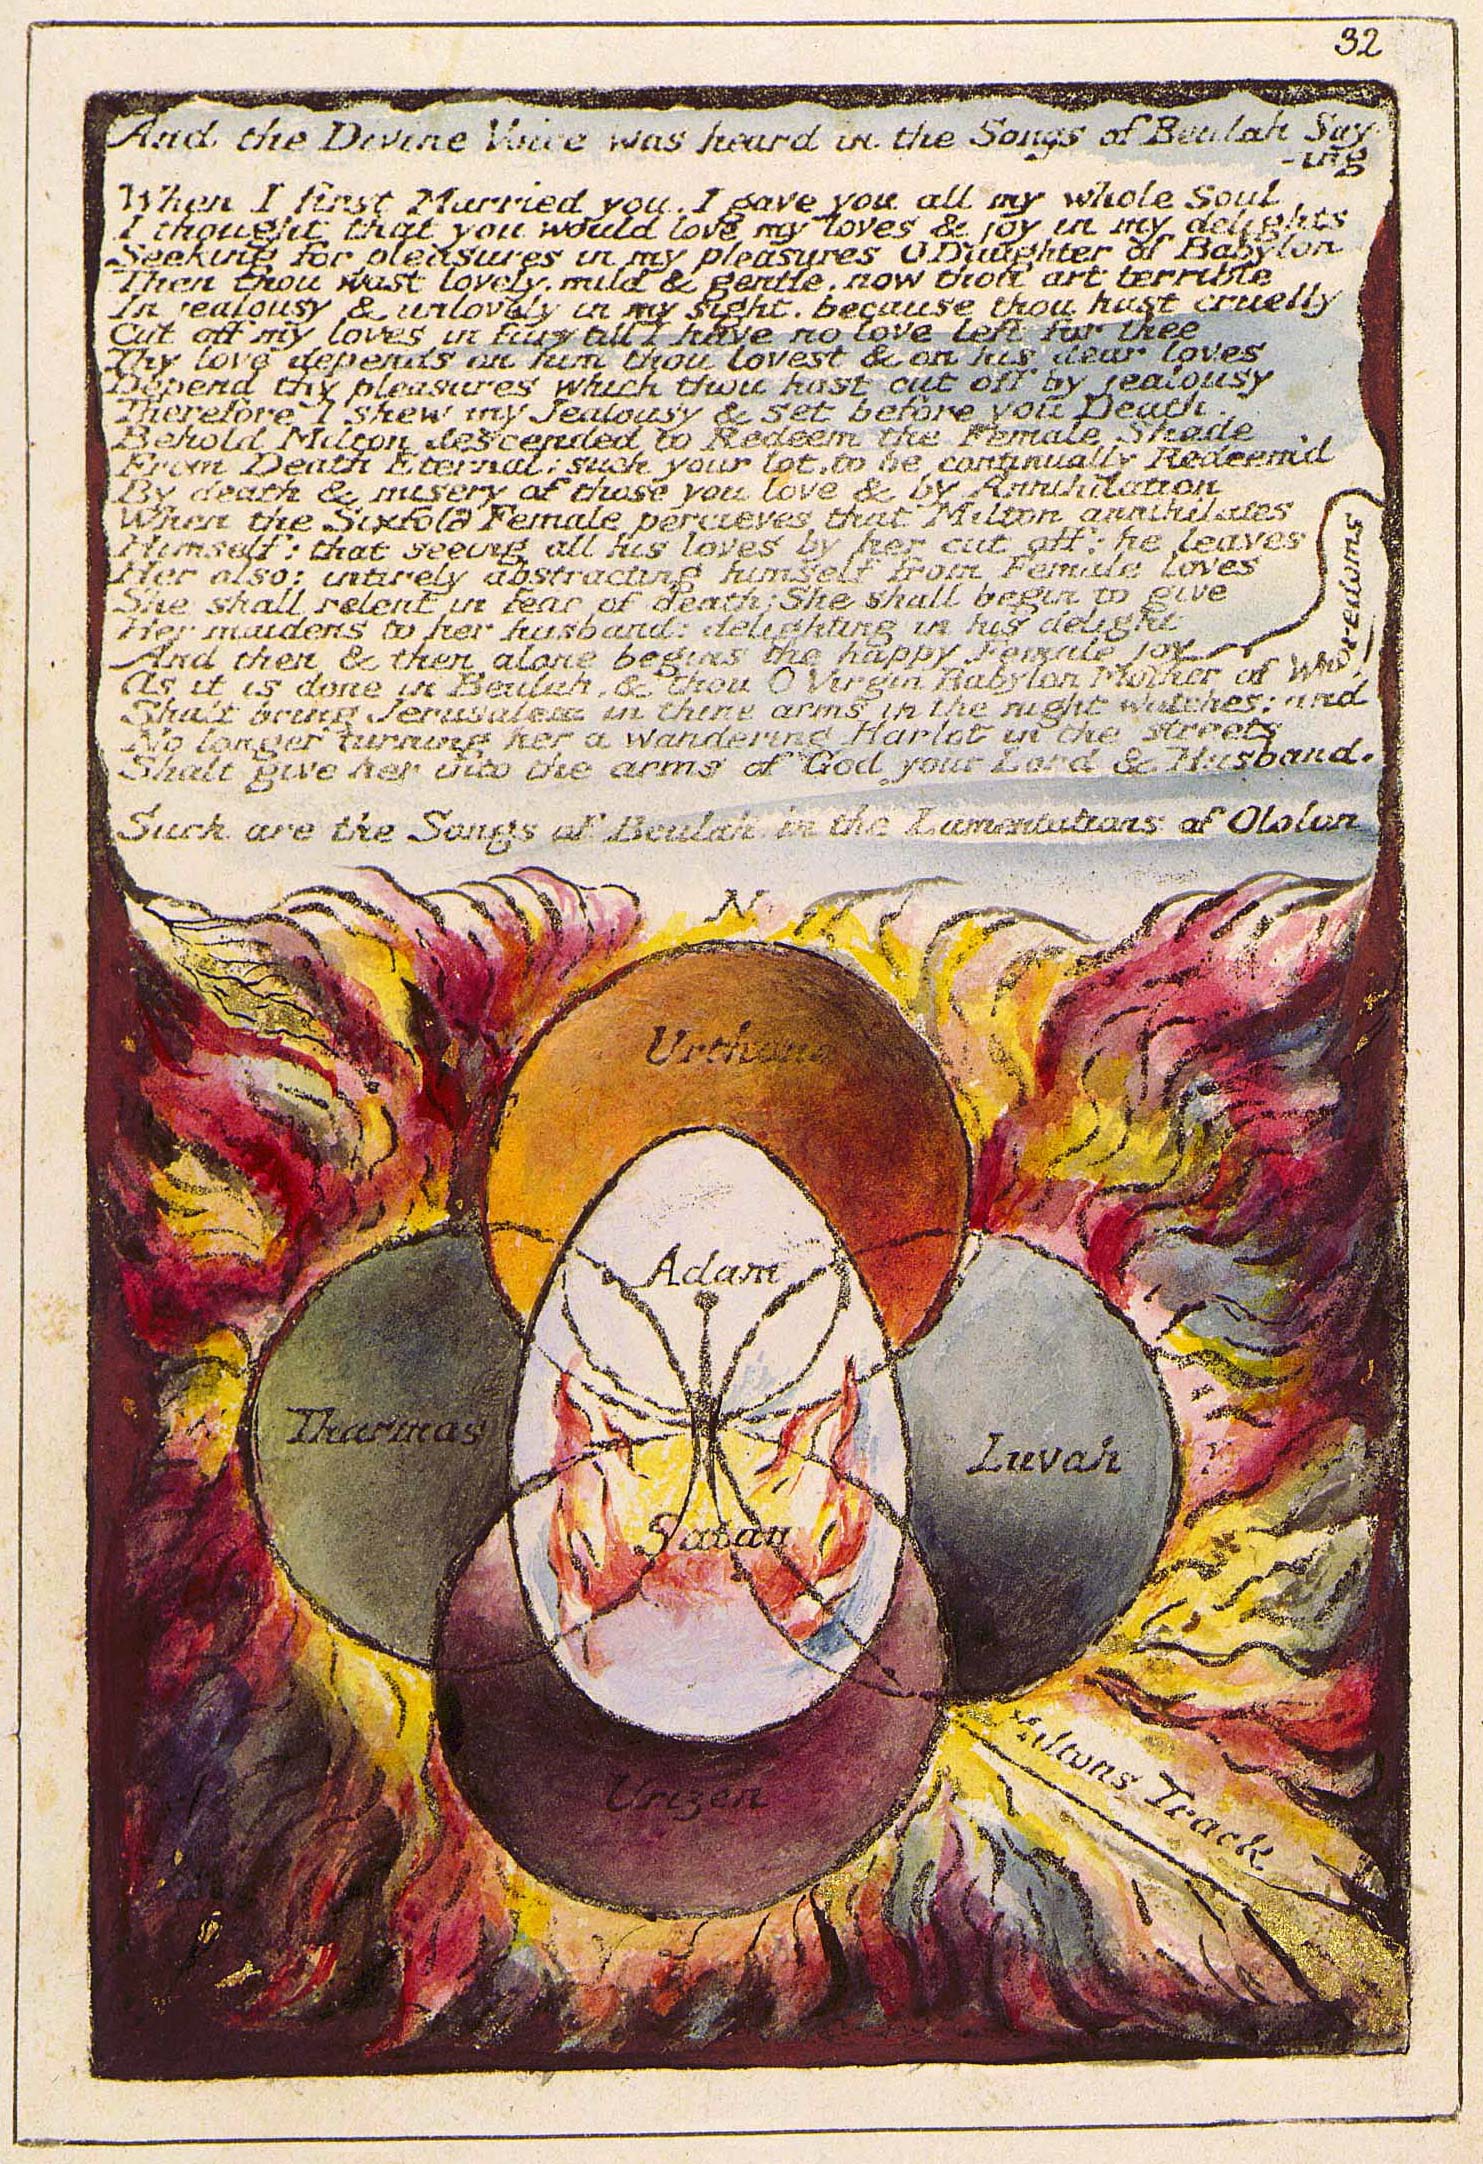 32
And the Divine Voice was heard in the Songs of Beulah Say-
-ing
When I first Married you, I gave you all my whole Soul
I thought that you would love my loves & joy in my delights
Seeking for pleasures in my pleasures O Daughter of Babylon
Then thou wast lovely, mild & gentle, now thou art terrible
In jealousy & unlovely in my sight, because thou hast cruelly
Cut off my loves in fury till I have no love left for thee
Thy love depends on him thou lovest & on his dear loves
Depend thy pleasures which thou hast cut off by jealousy
Therefore I shew my Jealousy & set before you Death.
Behold Milton descended to Redeem the Female Shade
From Death Eternal; such your lot, to be continually Redeem'd
By death & misery of those you love & by Annihilation
When the Sixfold Female percieves that Milton annihilates
Himself: that seeing all his loves by her cut off: he leaves
Her also: intirely abstracting himself from Female loves
She shall relent in fear of death; She shall begin to give
Her maidens to her husband: delighting in his delight
And then & then alone begins the happy Female joy
As it is done in Beulah, & thou O Virgin Babylon Mother of Whoredoms
Shalt bring Jerusalem in thine arms in the night watches; and
No longer turning her a wandering Harlot in the streets
Shalt give her into the arms of God your Lord & Husband.
Such are the Songs of Beulah in the Lamentations of Ololon
N
Urthona
Adam
Tharmas
Luvah
Satan
Urizen
Miltons Track